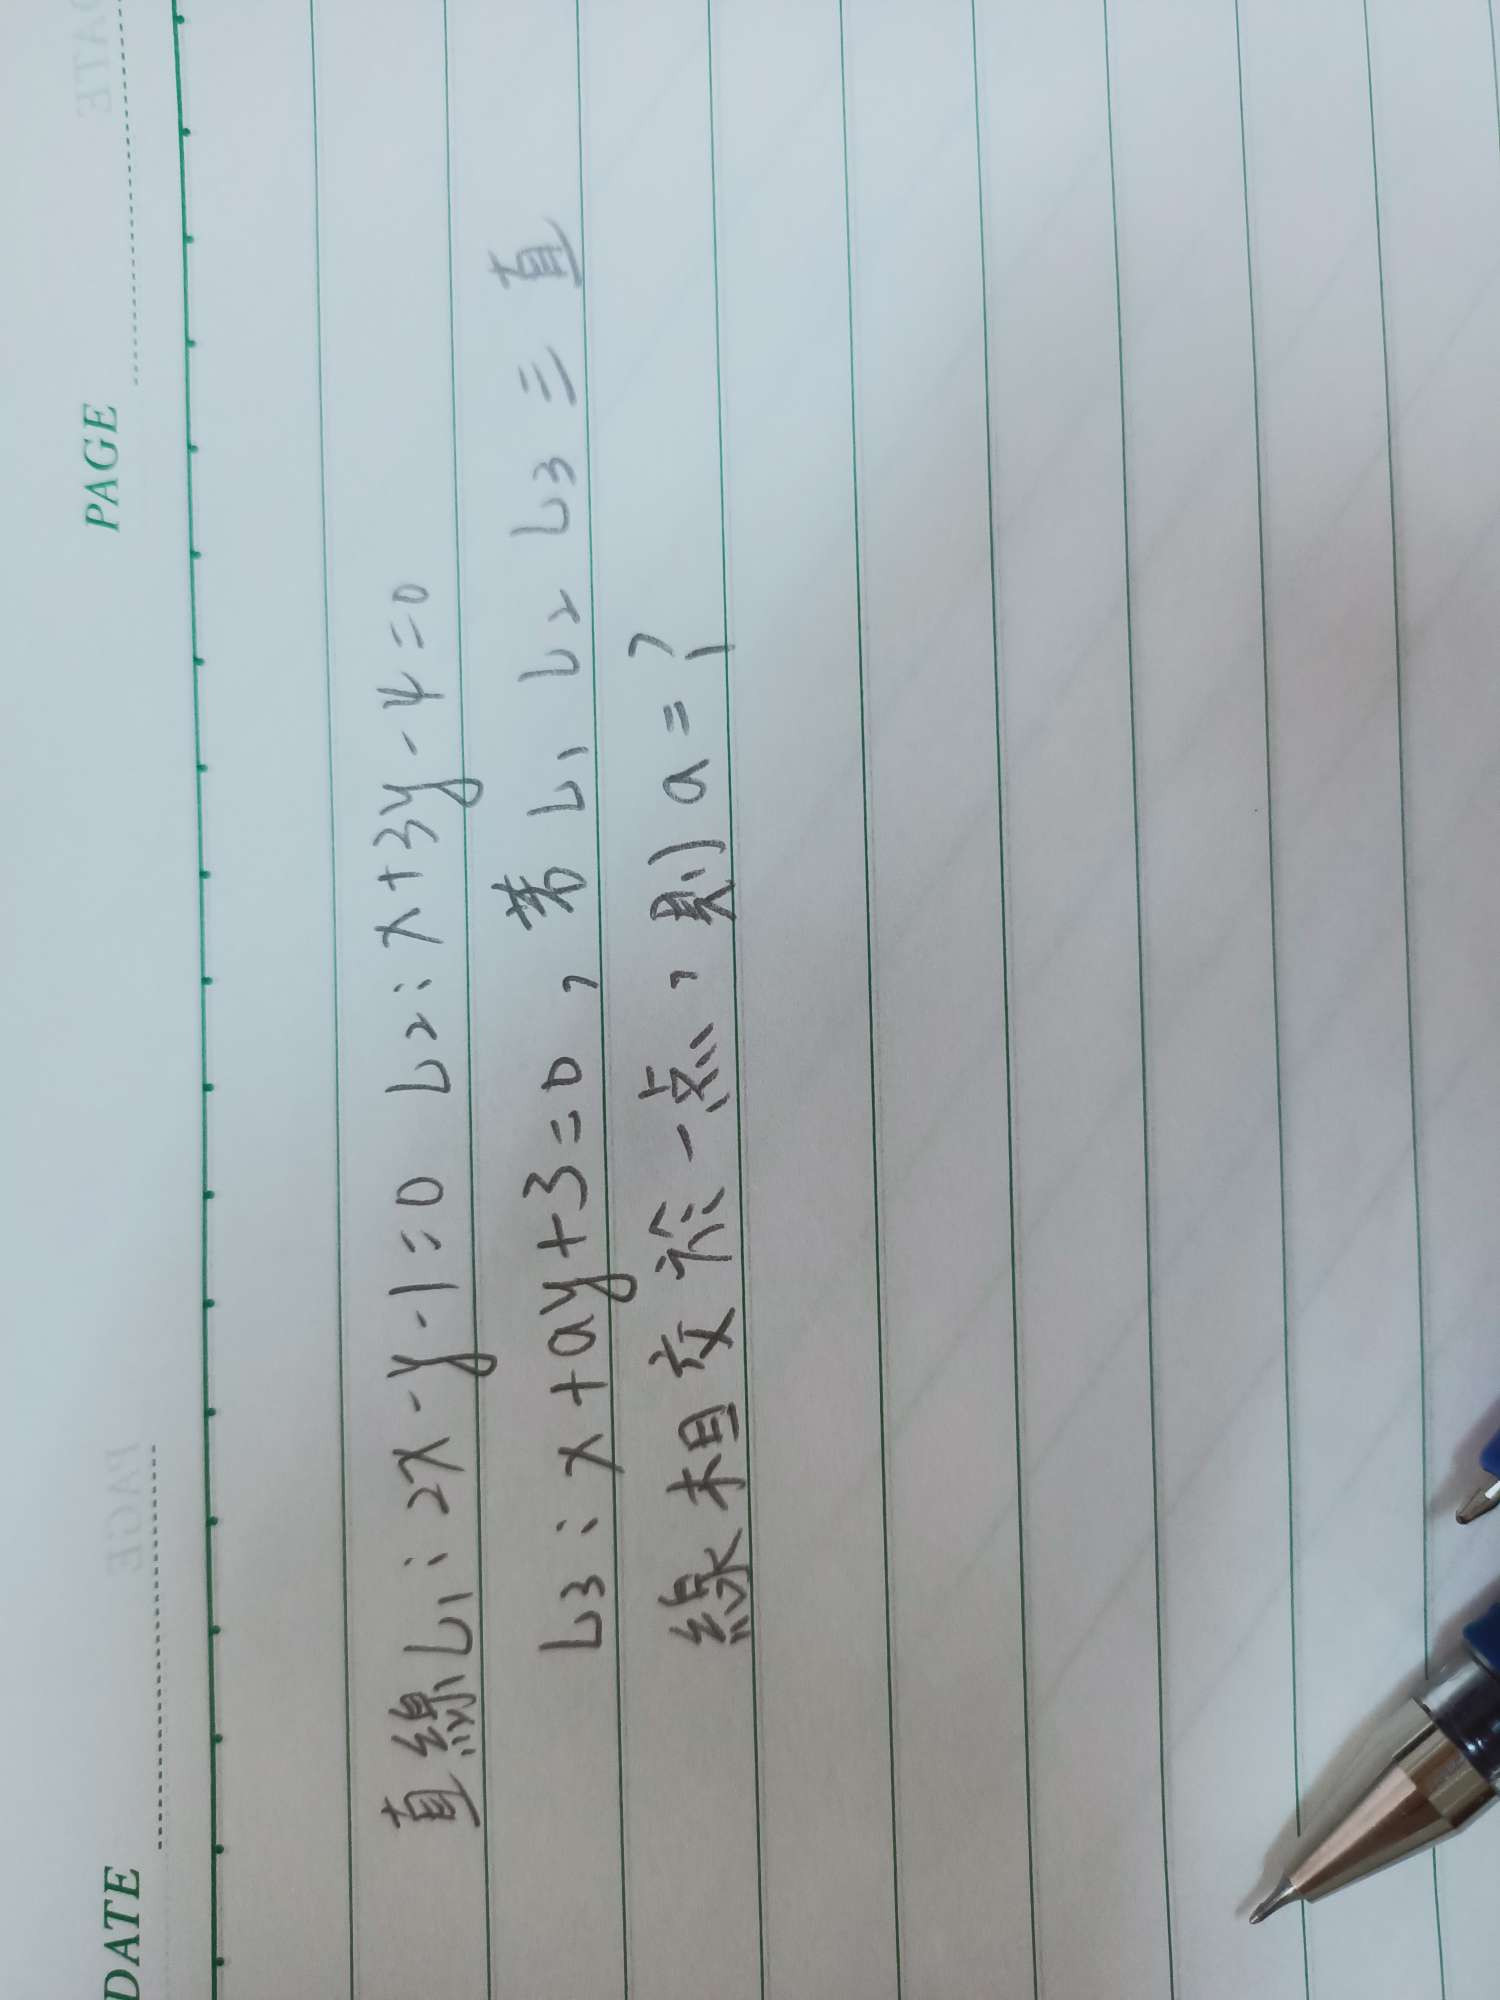 DATE PAGE
直線L1:2x-y-1=0 L2:x+3y-4=0
L3:x+ay+3=0,若L1 L2 L3三直
線相交於一点,則a=?